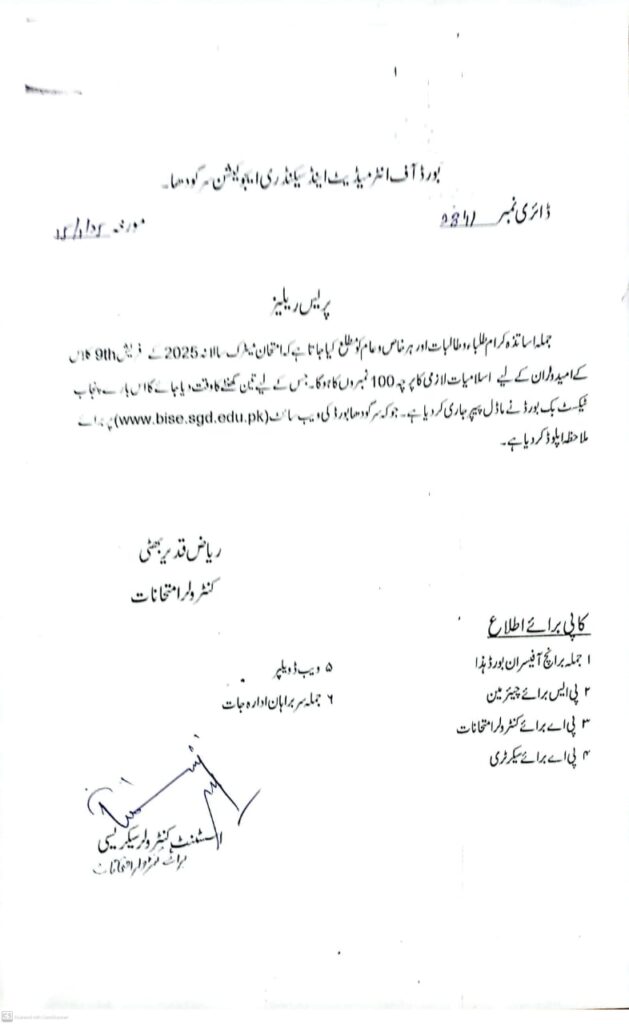 بورڈ آف انٹرمیڈیٹ اینڈ سیکنڈری ایجوکیشن سرگودھا۔
ڈائری نمبر مورخہ
پریس ریلیز
جملہ اساتذہ کرام طلباء و طالبات اور ہر خاص و عام کو مطلع کیا جاتا ہے کہ امتحان میٹرک سالانہ 2025 کے فریش 9th کلاس
کے امیدواران کے لیے اسلامیات لازمی کا پرچہ 100 نمبروں کا ہوگا۔ جس کے لیے تین گھنٹے کا وقت دیا جائے گا اس بارے پنجاب
ٹیکسٹ بک بورڈ نے ماڈل پیپر جاری کر دیا ہے۔ جو کہ سرگودھا بورڈ کی ویب سائٹ (www.bise.sgd.edu.pk) پر برائے
ملاحظہ اپلوڈ کر دیا ہے۔
ریاض قدیر بھٹی
کنٹرولر امتحانات
کاپی برائے اطلاع
۱ جملہ برانچ آفیسران بورڈ ہذا
۲ پی ایس برائے چیئرمین
۳ پی اے برائے کنٹرولر امتحانات
۴ پی اے برائے سیکرٹری
۵ ویب ڈویلپر
۶ جملہ سربراہان ادارہ جات
اسسٹنٹ کنٹرولر سیکریسی
برائے کنٹرولر امتحانات